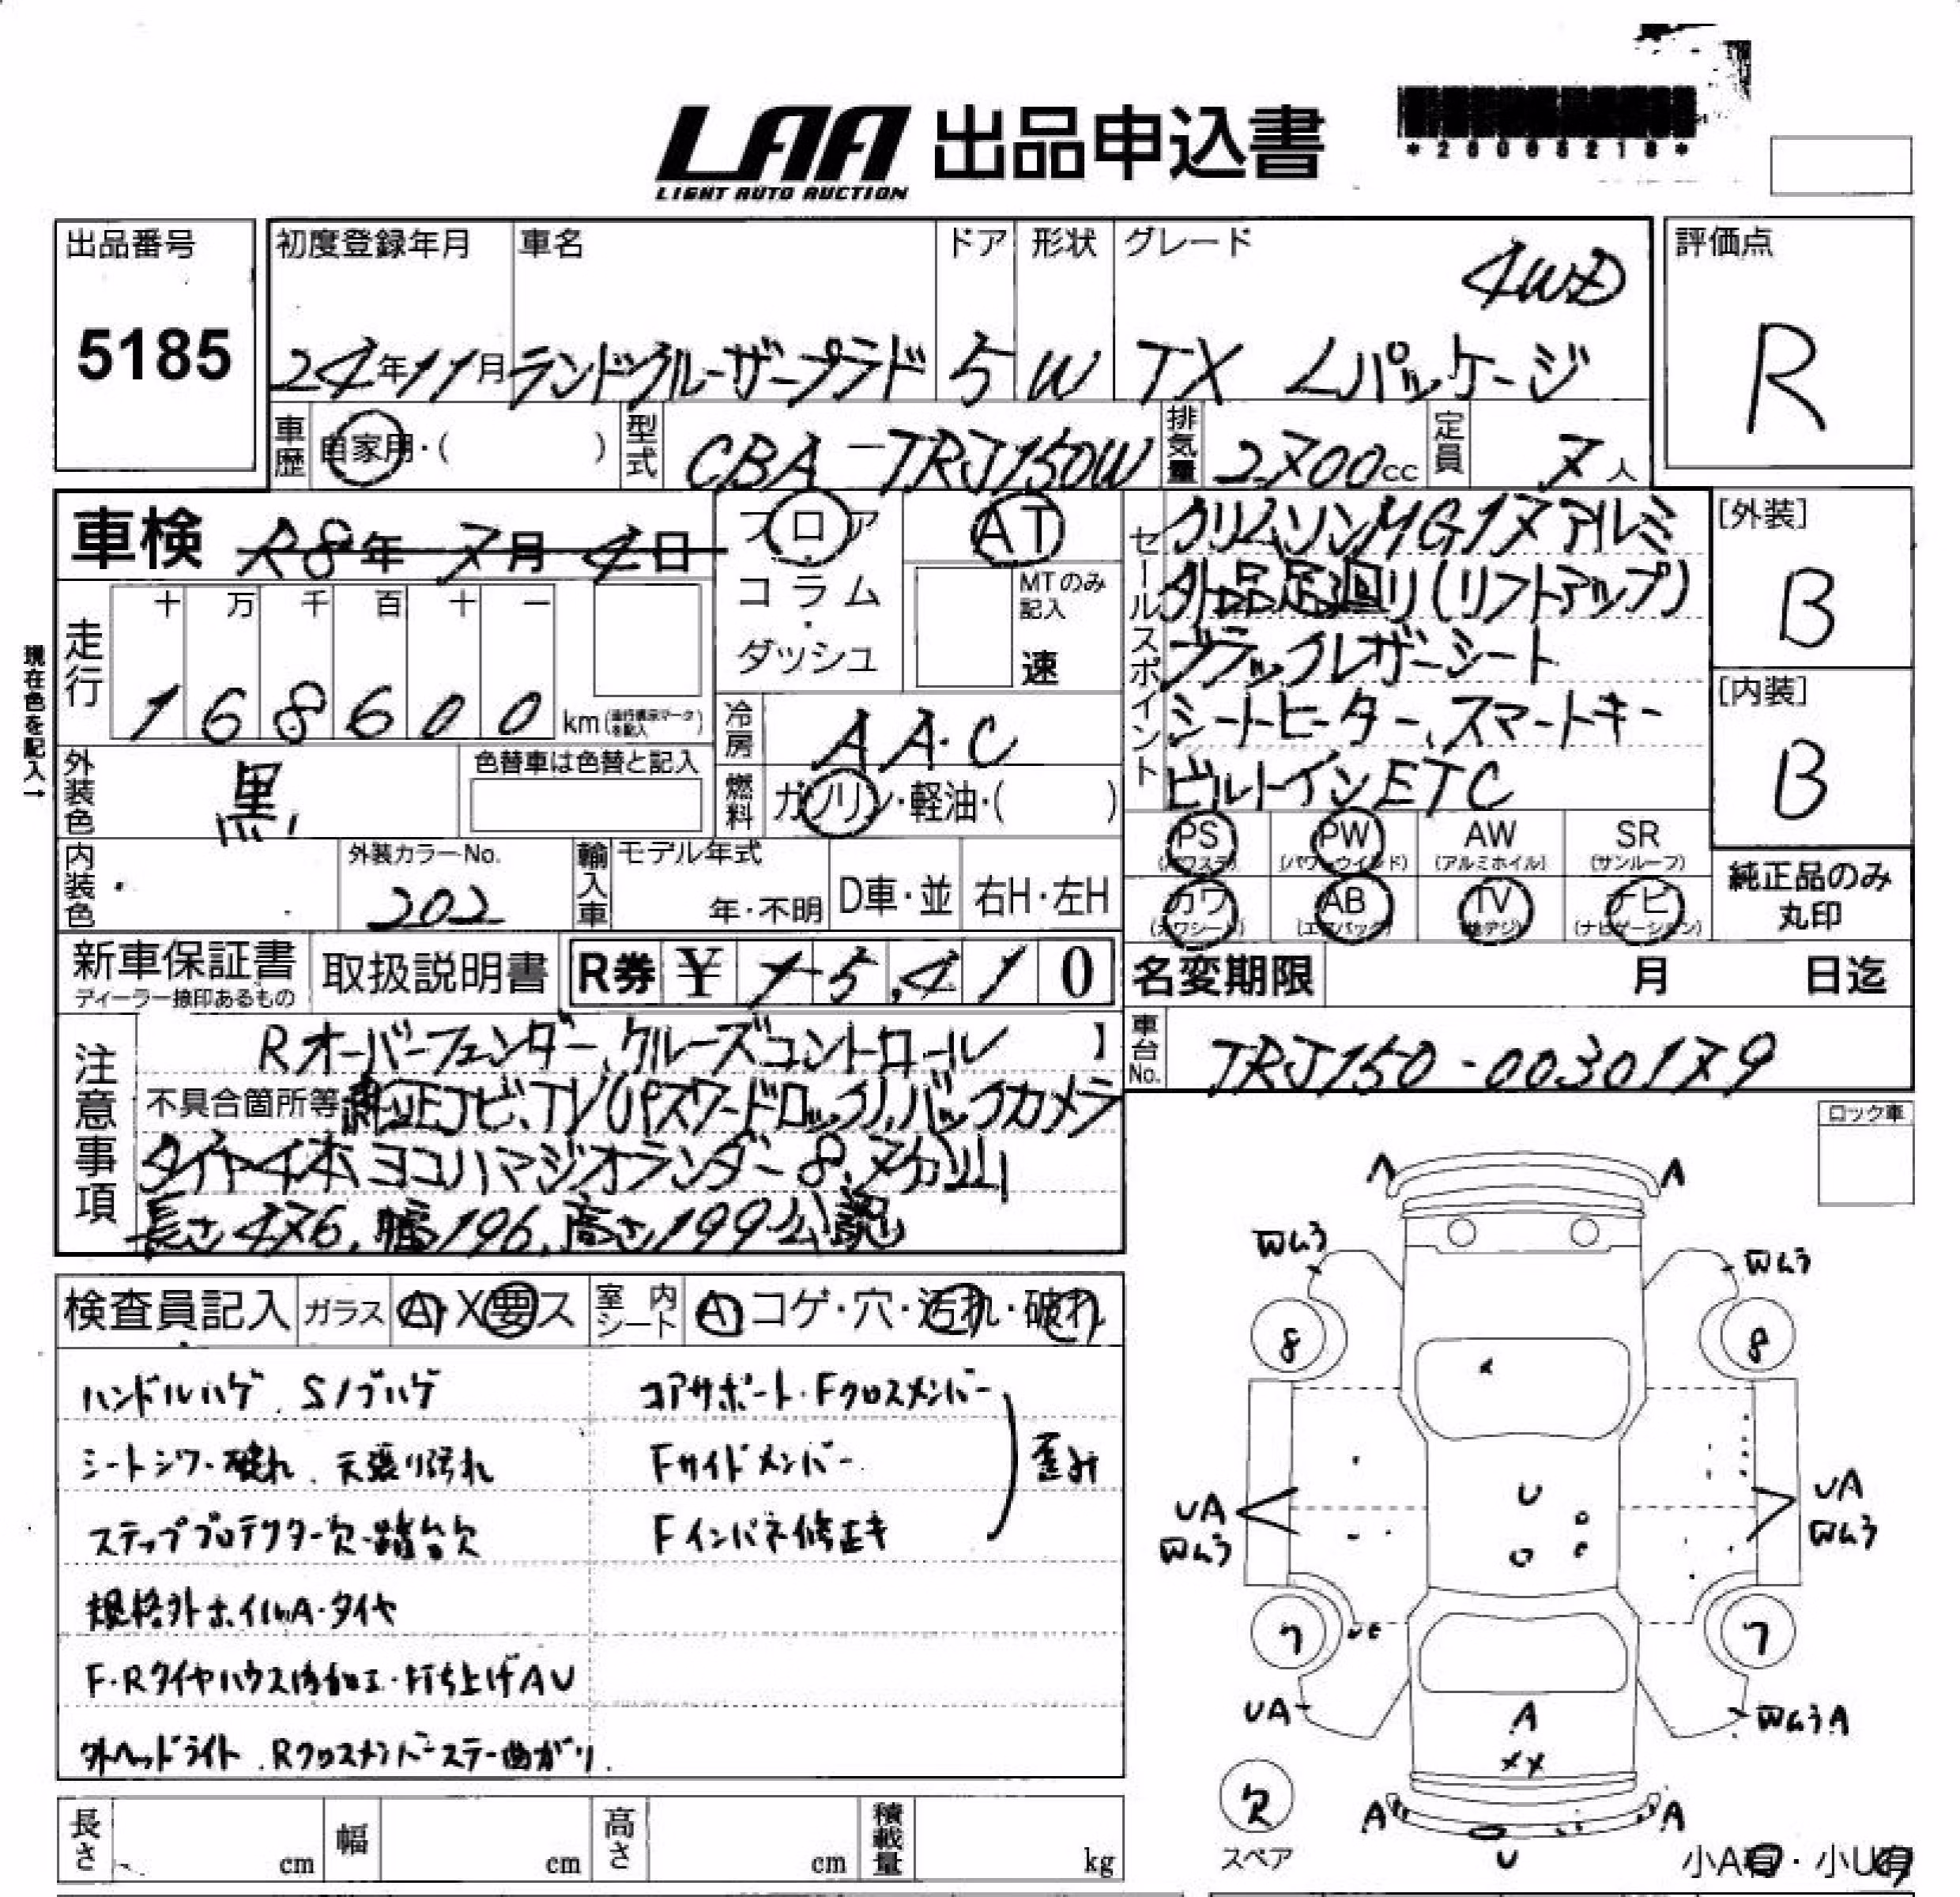 LAA 出品申込書
LIGHT AUTO AUCTION
出品番号
5185
初度登録年月 車名 ドア 形状 グレード
4WD
24年11月 ランドクルーザープラド 5 W TX Lパッケージ
評価点
R
車歴 自家用・( ) 型式 CBA-TRJ150W 排気量 2700cc 定員 7人
車検 R8年7月4日
フロア
コラム・
ダッシュ
AT
MTのみ記入
速
現在色を記入→
走行 十 万 千 百 十 一
1 6 8 6 0 0 km (走行表示マークを記入)
外装色 黒
色替車は色替と記入
冷房 AA.C
燃料 ガソリン・軽油・( )
セールスポイント
クリムソンMG17アルミ
外品足廻り(リフトアップ)
ブラックレザーシート
シートヒーター、スマートキー
ビルトインETC
[外装]
B
[内装]
B
内装色
外装カラーNo.
202
輸入車 モデル年式
年・不明 D車・並 右H・左H
PS
(パワステ)
PW
(パワーウインド)
AW
(アルミホイル)
SR
(サンルーフ)
カワ
(カワシート)
AB
(エアバック)
TV
(地デジ)
ナビ
(ナビゲーション)
純正品のみ
丸印
新車保証書
ディーラー捺印あるもの
取扱説明書
R券 ¥ 15,410
名変期限 月 日迄
車台No. TRJ150-0030179
注意事項
Rオーバーフェンダー、クルーズコントロール 】
不具合箇所等 純正ナビ、TV(パスワードロック)、バックカメラ
タイヤ4本ヨコハマジオランダー8.7分山
長さ476、幅196、高さ199公認
ロック車
検査員記入 ガラス A・X要ス 室内シート A コゲ・穴・汚れ・破れ
ハンドルハゲ、Sノブハゲ
シートシワ・破れ、天張り汚れ
ステッププロテクター欠・踏台欠
規格外ホイルA・タイヤ
F・Rタイヤハウス内加工・打ち上げAU
外ヘッドライト、Rクロスメンバーステー曲がり
コアサポート・Fクロスメンバー
Fサイドメンバー
歪み
Fインパネ修正キ
A A
凹ムラ 凹ムラ
8 8
U
UA UA
凹ムラ 凹ムラ
7 7
UA 凹ムラA
A
XX
欠
スペア
A A
U
小A有・小U有
長さ cm 幅 cm 高さ cm 積載量 kg